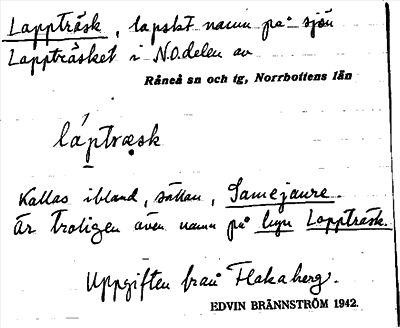 Lappträsk, lapskt namn på sjön
Lappträsket i N.O.delen av
Råneå sn och tg, Norrbottens län
láptræsk
Kallas ibland, sällan, Samejaure.
Är troligen även namn på byn Lappträsk.
Uppgiften från Flakaberg.
EDVIN BRÄNNSTRÖM 1942.